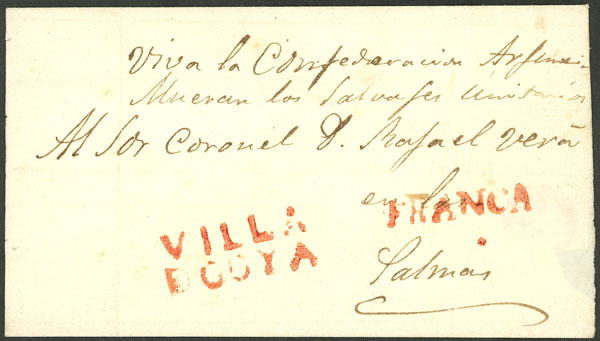 Viva la Confederacion Argenti
Mueran los Salvages Unitarios
Al Sor Coronel D. Rafael Vera
en las
FRANCA
VILLA
D GOYA
Palmas